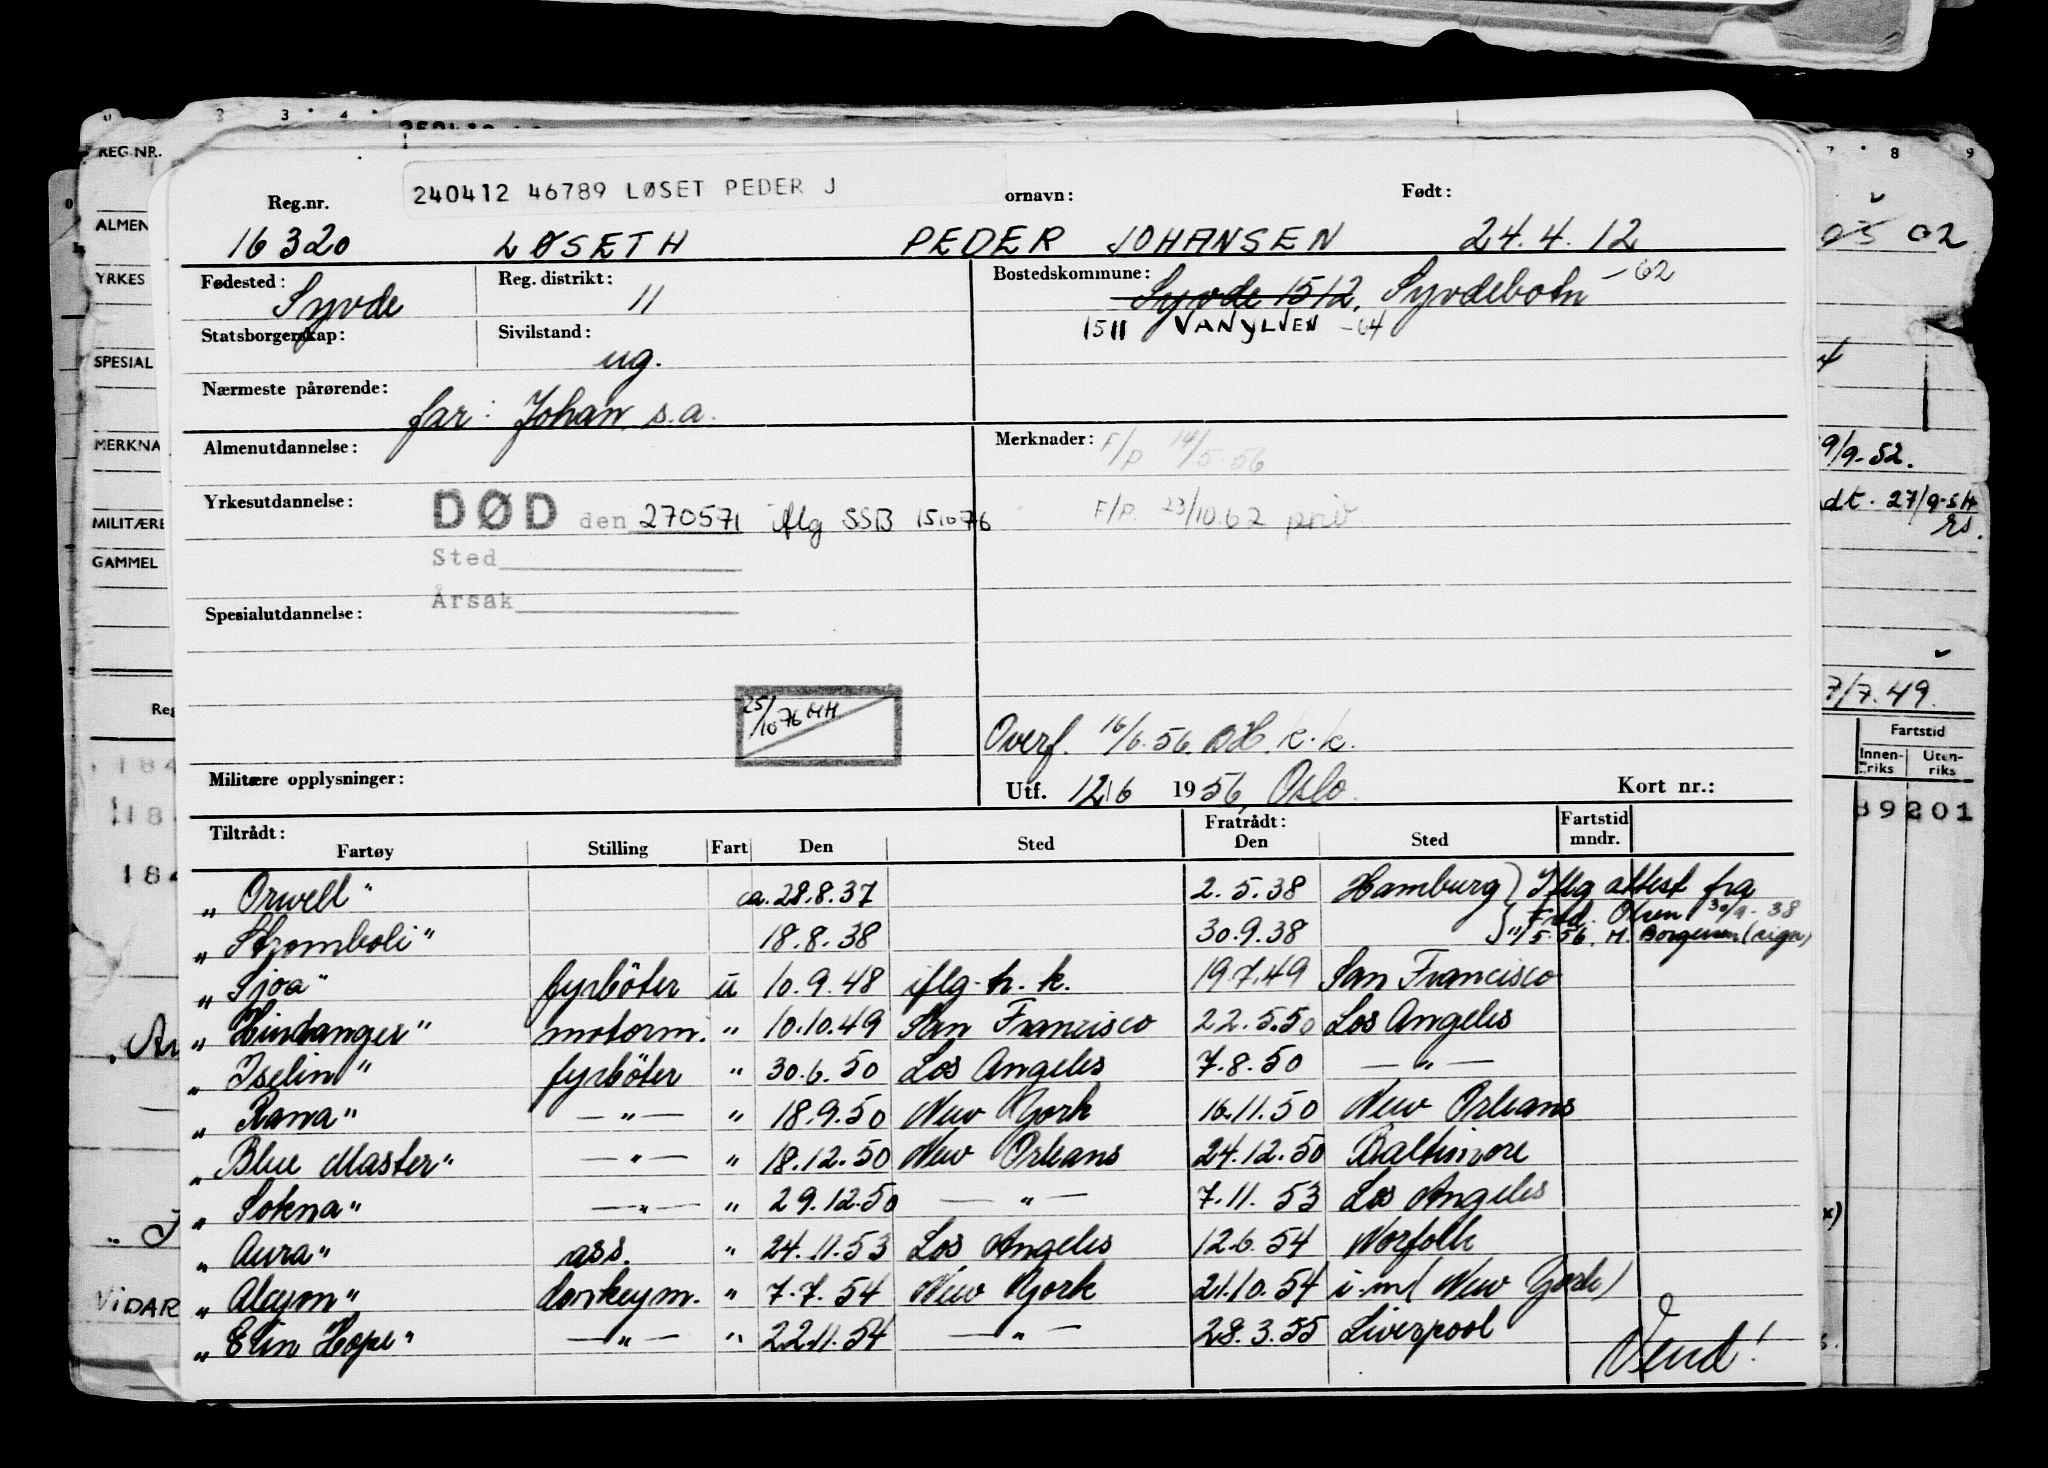 240412 46789 LØSET PEDER J
Reg.nr. ornavn: Født:
16320 LØSETH PEDER JOHANSEN 24.4.12
Fødested: Syvde Reg. distrikt: 11 Bostedskommune: Syvde 1512, Syvdebotn -62
1511 VANYLVEN -64
Statsborgerskap: Sivilstand: ug.
Nærmeste pårørende: far: Johan s.a.
Almenutdannelse: Merknader: F/P 14/5-56
Yrkesutdannelse: DØD den 270571 iflg SSB 151076 F/P. 23/10.62 priv
Sted
Årsak
Spesialutdannelse:
25/10 76 HH
Overf. 16/6.56. BH. k.k.
Militære opplysninger: Utf. 12/6 1956, Oslo. Kort nr.:
Tiltrådt: Fratrådt: Fartstid
Fartøy Stilling Fart Den Sted Den Sted mndr.
„Orwell" ca. 28.8.37 2.5.38 Hamburg) Iflg attest fra
Fred. Olsen 30/9-38
„Stromboli" 18.8.38 30.9.38 } "/5 56. M. Borgersen (sign)
„Sjoa" fyrböter u 10.9.48 iflg. h.k. 19.7.49 San Francisco
„Lindanger" motorm. " 10.10.49 San Francisco 22.5.50 Los Angeles
„Iselin" fyrböter " 30.6.50 Los Angeles 7.8.50 — " —
„Rana" — " — " 18.9.50 New York 16.11.50 New Orleans
„Blue Master" — " — " 18.12.50 New Orleans 24.12.50 Baltimore
„Sokna" — " — " 29.12.50 — " — 7.11.53 Los Angeles
„Aura" ass. " 24.11.53 Los Angeles 12.6.54 Norfolk
„Alcyon" donkeym. " 7.7.54 New York 21.10.54 i-m( New York)
„Elin Hope" — " — " 22.11.54 — " — 28.3.55 Liverpool
Vend!
REG NR.
ALMEN
YRKES
SPESIAL
MERKNA
MILITÆRE
GAMMEL
Reg
184
18
184
VIDAR
02
9/9-52.
dt. 27/9-54
rs.
7/7.49.
Fartstid
Innen-riks Uten-riks
89201